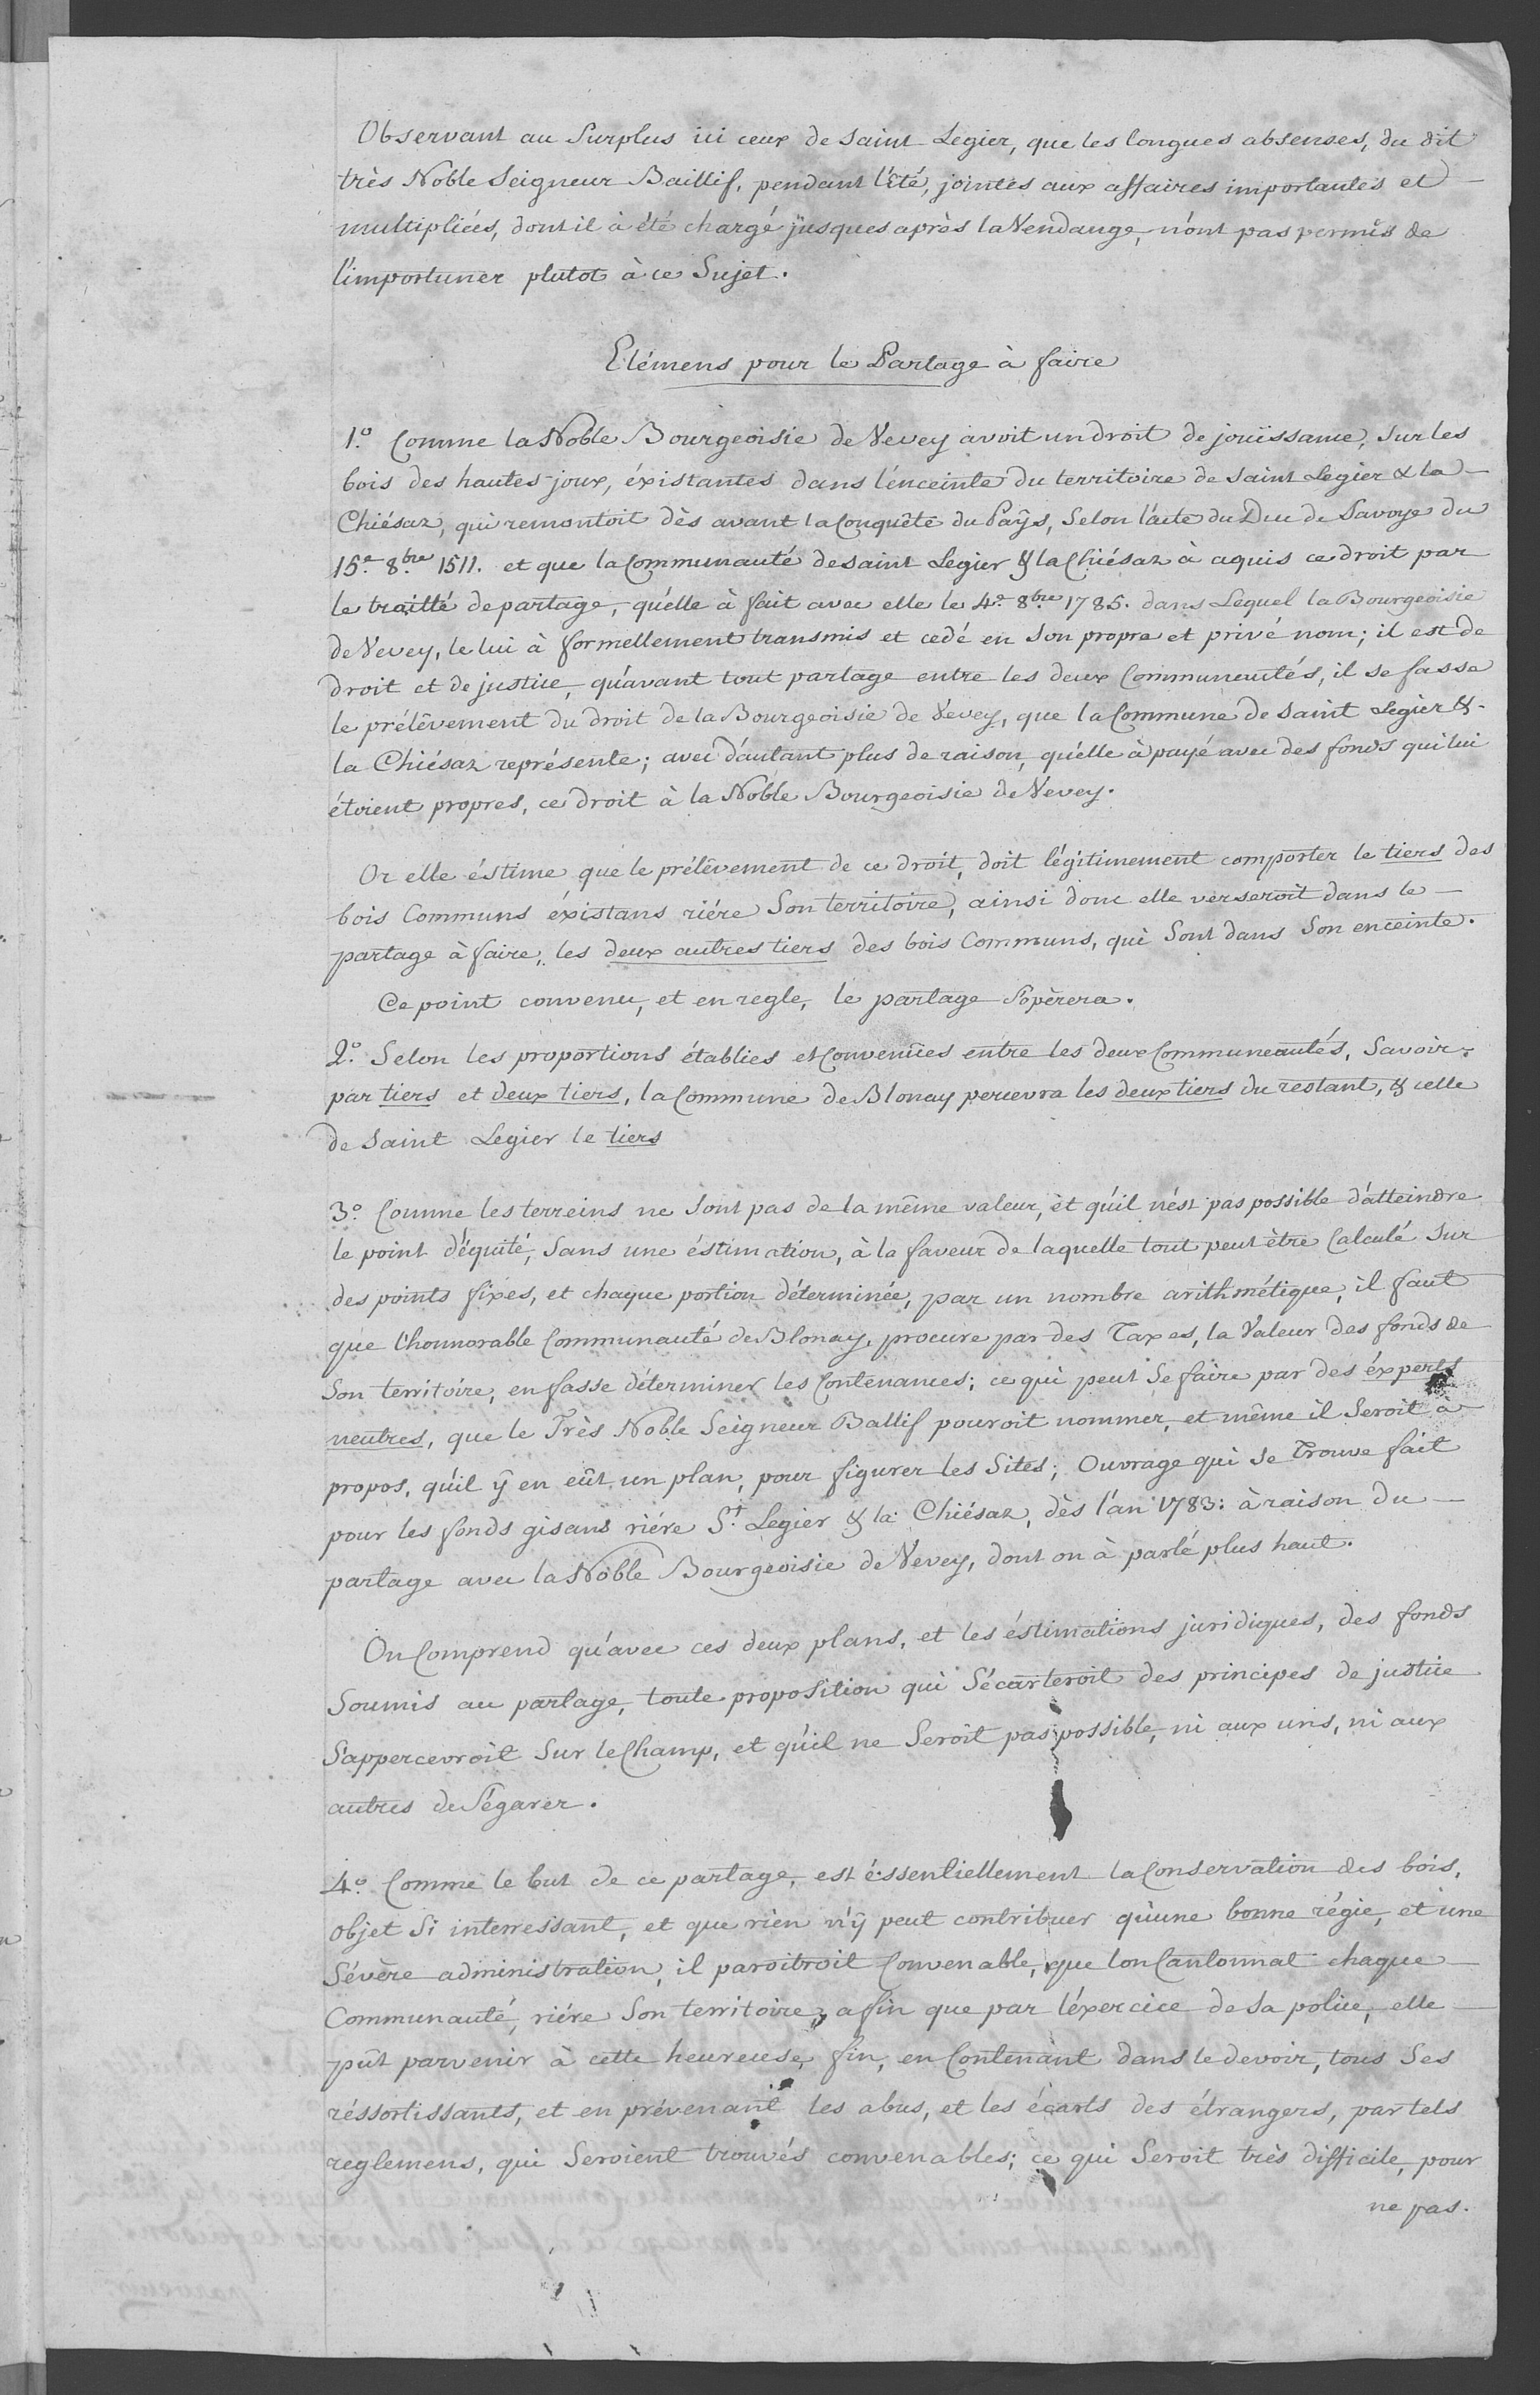 Observant au Surplus ici ceux de Saint Legier, que les longues absenses, du dit
très Noble Seigneur Baillif, pendant l'Eté, jointes aux affaires importantes et
multipliées, dont il à été chargé jusques après la Vendange, n'ont pas permis de
l'importuner plutot à ce Sujet.
Elémens pour le Partage à faire
1.º Comme la Noble Bourgeoisie de Vevey avoit un droit de jouïssance, Sur les
bois des hautes-joux, éxistantes dans l'énceinte du territoire de Saint Legier & la
Chiésaz, qui remontoit dès avant la Conquête du Paÿs, Selon l'acte du Duc de Savoye du
15.e 8.bre 1511. et que la Communauté de Saint Legier & la Chiésaz à aquis ce droit par
le traitté de partage, qu'elle à fait avec elle le 4.e 8.bre 1785. dans Lequel la Bourgeoisie
de Vevey, le lui à formellement transmis et cedé en Son propre et privé nom; il est de
droit et de justice, qu'avant tout partage entre les deux Communeutés, il se fasse
le prélêvement du droit de la Bourgeoisie de Vevey, que la Commune de Saint Legier &
la Chiésaz représente; avec d'autant plus de raison, qu'elle à payé avec des fonds qui lui
étoient propres, ce droit à la Noble Bourgeoisie de Vevey.
Or elle éstime que le prélêvement de ce droit, doit légitimement comporter le tiers des
bois Communs éxistans riére Son territoire, ainsi donc elle verseroit dans le
partage à faire, les deux autres tiers des bois Communs, qui Sont dans Son enceinte.
Ce point convenu, et en regle, le partage S'opèrera.
2.º Selon les proportions établies et Convenûes entre les deux Communeautés, Savoir.
par tiers et deux tiers, la Commune de Blonay percevra les deux tiers du restant, & celle
de Saint Legier le tiers
3.º Comme les terreins ne Sont pas de la même valeur, et qu'il n'ést pas possible d'atteindre
le point d'équité, Sans une éstimation, à la faveur de laquelle tout peut être Calculé Sur
des points fixes, et chaque portion déterminée, par un nombre arithmétique, il faut
que l'honnorable Communauté de Blonay, procure par des Taxes, la Valeur des fonds de
Son territoire, en fasse déterminer les Contenances; ce qui peut Se faire par des éxperts
neutres, que le Très Noble Seigneur Ballif pouroit nommer, et même il Seroit à
propos, qu'il ÿ en eût un plan, pour figurer les Sites; Ouvrage qui Se Trouve fait
pour les fonds gisans riére S.t Legier & la Chiésaz, dès l'an 1783: à raison du
partage avec la Noble Bourgeoisie de Vevey, dont on à parlé plus haut.
On Comprend qu'avec ces deux plans, et les éstimations juridiques, des fonds
Soumis au partage, toute proposition qui S'écarteroit des principes de justice
S'appercevroit Sur le Champ, et qu'il ne Seroit pas possible, ni aux uns, ni aux
autres de S'égarer.
4.º Comme le but de ce partage, est éssentiellement la Conservation des bois,
objet Si interressant, et que rien n'ÿ peut contribuer qu'une bonne régie, et une
Sévère administration, il paroitroit Convenable, que l'on Cantonnat chaque
Communauté, riére Son territoire, afin que par l'éxercice de Sa police, elle
pût parvenir à cette heureuse fin, en Contenant dans le devoir, tous Ses
réssortissants, et en prévenant les abus, et les écarts des étrangers, par tels
reglemens, qui Seroient trouvés convenables; ce qui Seroit très difficile, pour
ne pas.